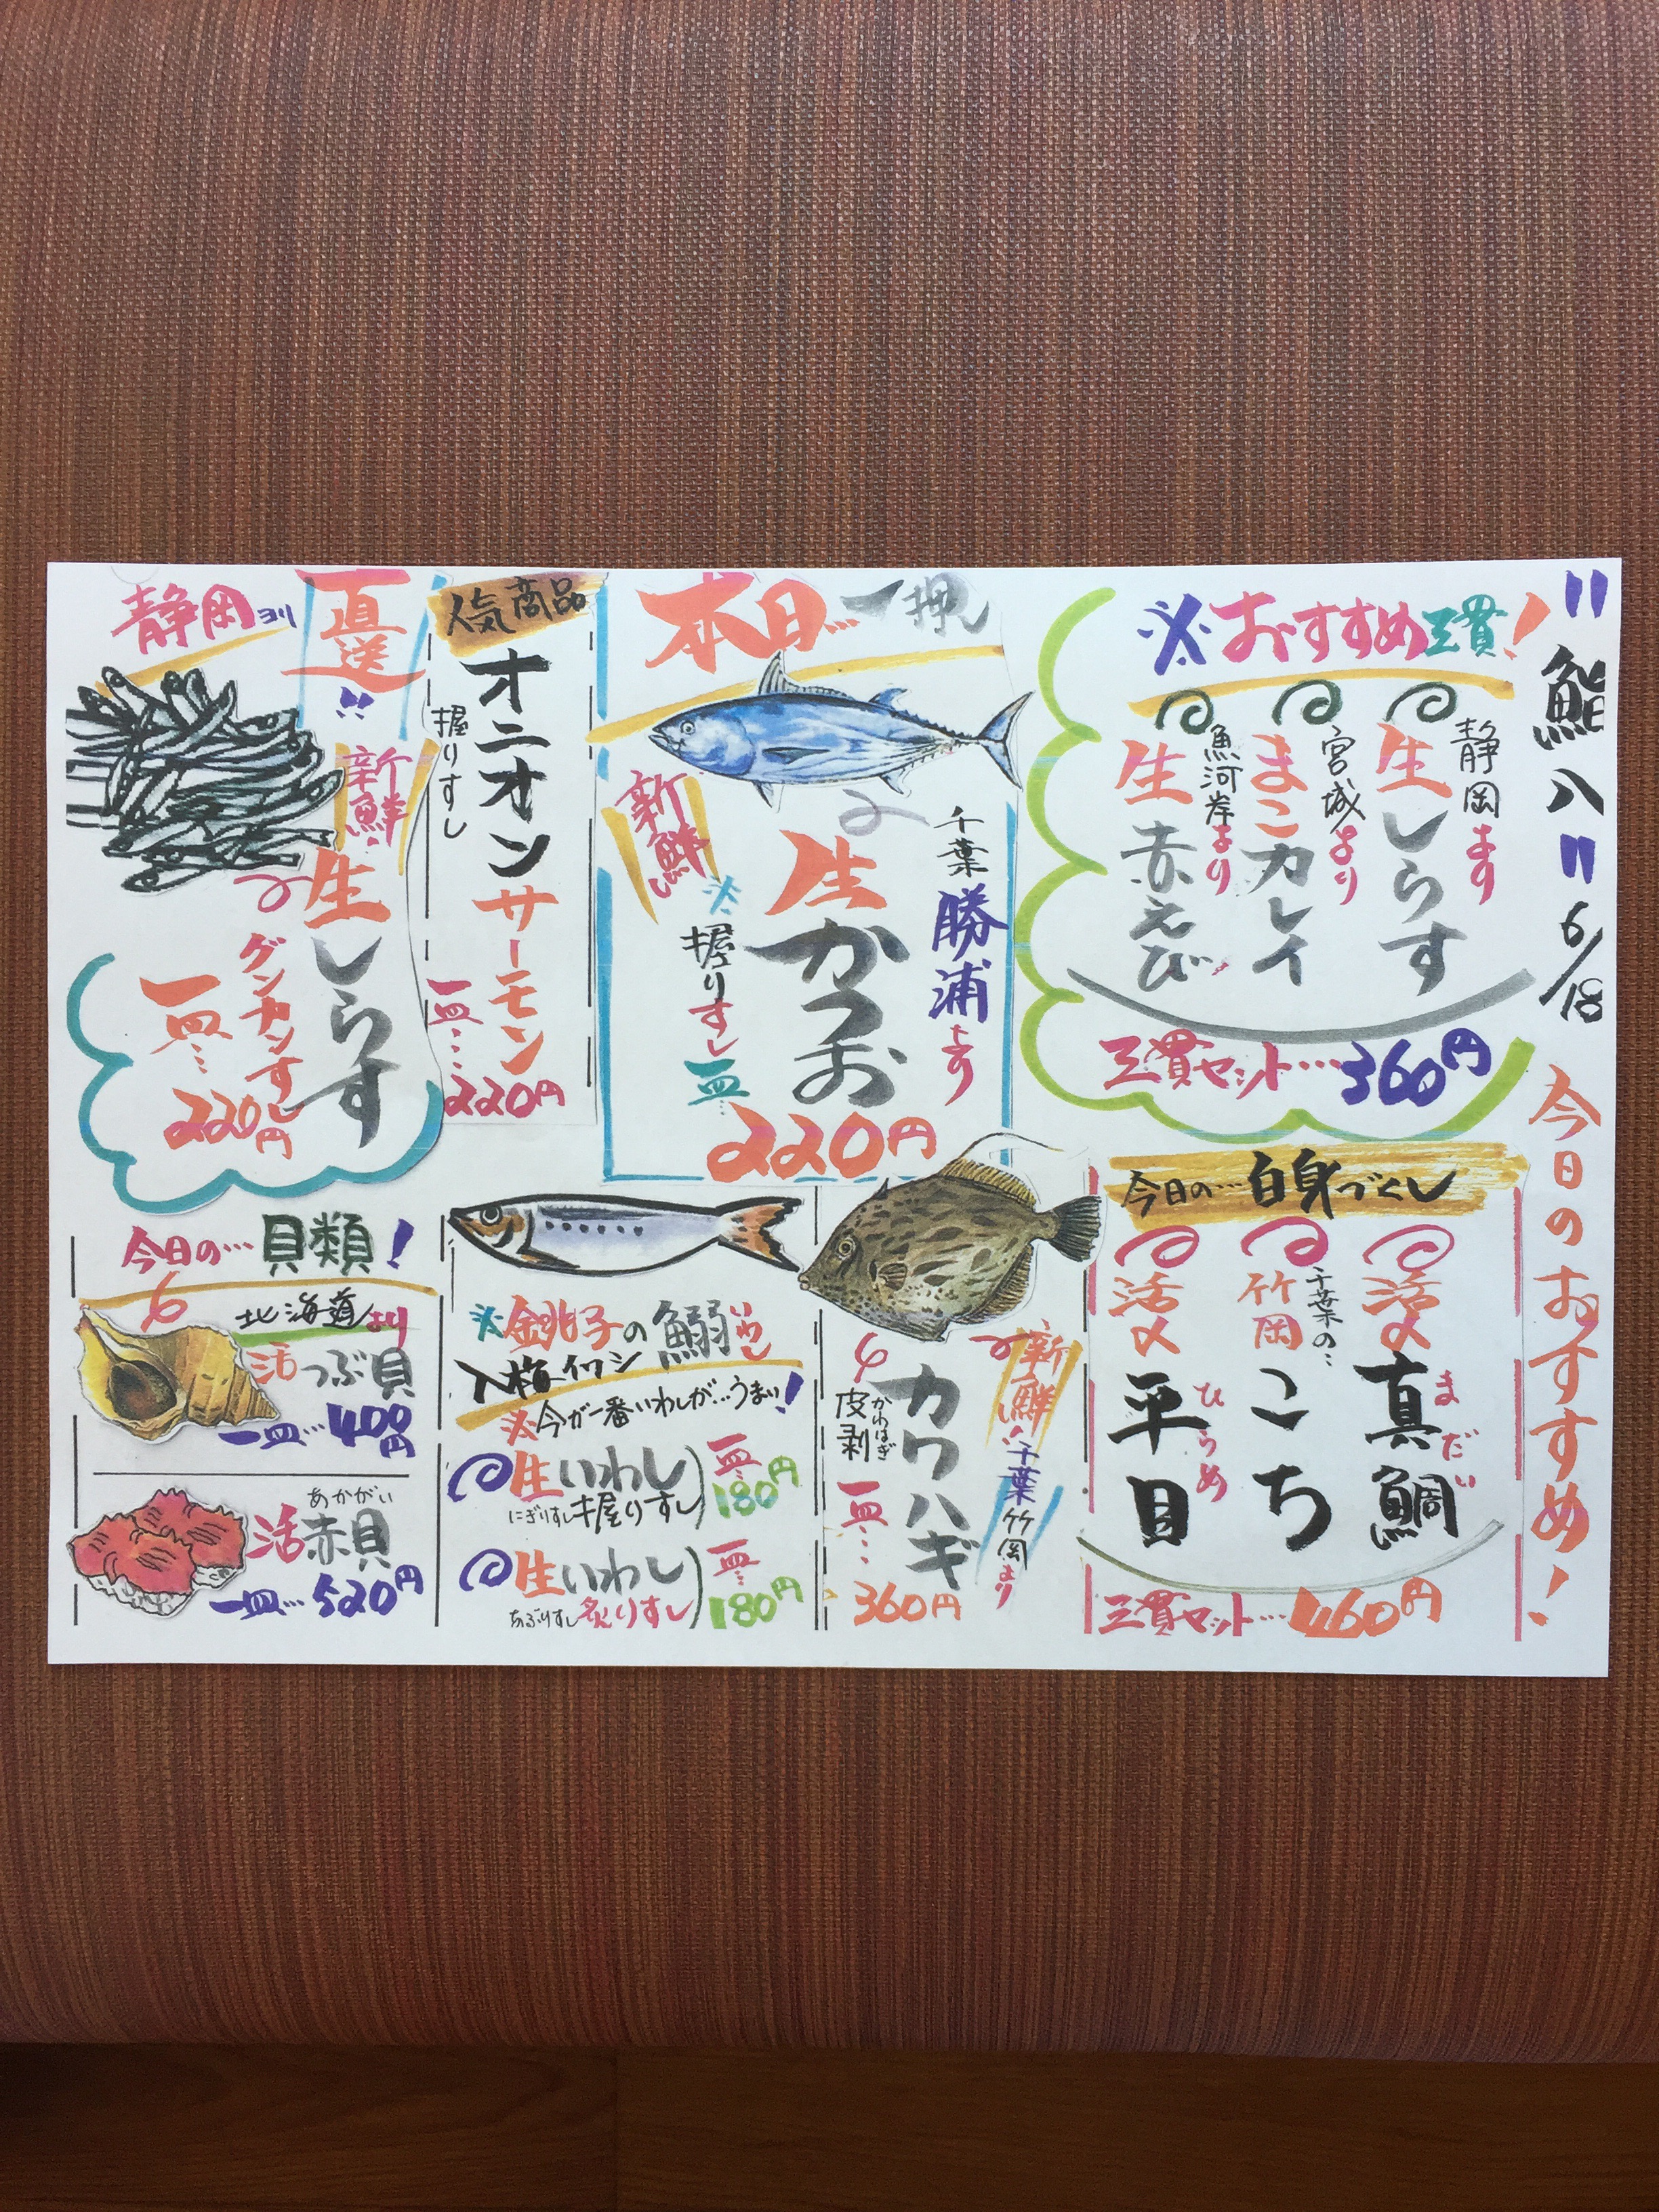 "鮨八" 6/18
今日のおすすめ!
※おすすめ三貫!
静岡より
生しらす
宮城より
まこカレイ
魚河岸より
生赤えび
三貫セット…360円
本日…一押し
千葉勝浦より
新鮮
生かつお
※握りすし一皿…
220円
人気商品
オニオンサーモン
握りすし
一皿…220円
静岡ヨリ
直送"
新鮮!
生しらす
グンカンすし
一皿…220円
今日の…白身づくし
活〆真鯛
まだい
千葉の…
竹岡こち
活〆平目
ひらめ
三貫セット…460円
新鮮!千葉竹岡より
カワハギ
かわはぎ
皮剥
一皿…360円
※銚子の鰯いわし
入梅イワシ
※今が一番いわしが…うまい!
生いわし
にぎりすし握りすし
一皿…180円
生いわし
あぶりすし炙りすし
一皿…180円
今日の…貝類!
北海道より
活つぶ貝
一皿…400円
あかがい
活赤貝
一皿…520円